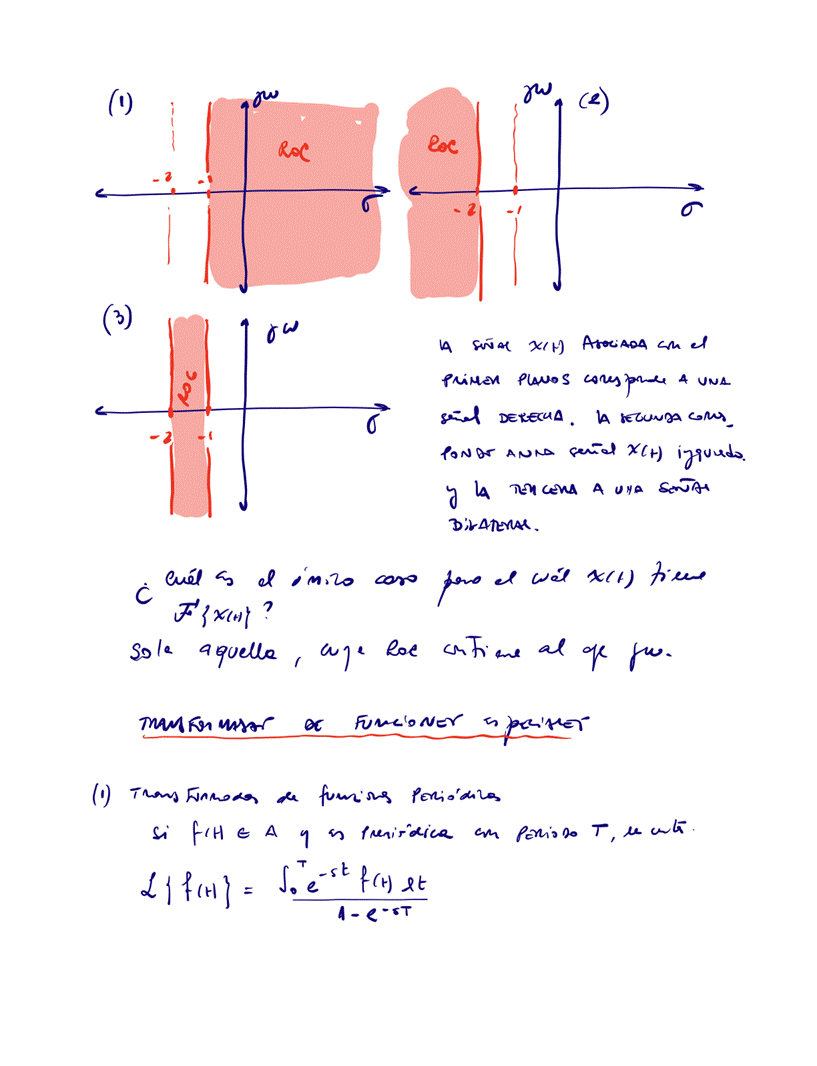 (1)
jω
ROC
-2
-1
σ
jω
(2)
ROC
-2
-1
σ
(3)
jω
ROC
-2
-1
σ
LA SEÑAL X(t) ASOCIADA con el
PRIMER PLANOS corresponde A UNA
señal DERECHA. LA SEGUNDA CORRES_
PONDE A UNA señal X(t) izquierda.
y LA TERCERA A UNA SEÑAL
BILATERAL.
¿ Cuál es el único caso para el cuál x(t) tiene
F{x(t)}?
Sola aquella, cuya ROC contiene al eje jω.
TRANSFORMADAS DE FUNCIONES ESPECIALES
(1) Transformadas de funciones Periódicas
Si f(t) ∈ A y es periódica con periodo T, se
L{f(t)} = ∫₀ᵀ e^-st f(t) dt
1 - e^-sT